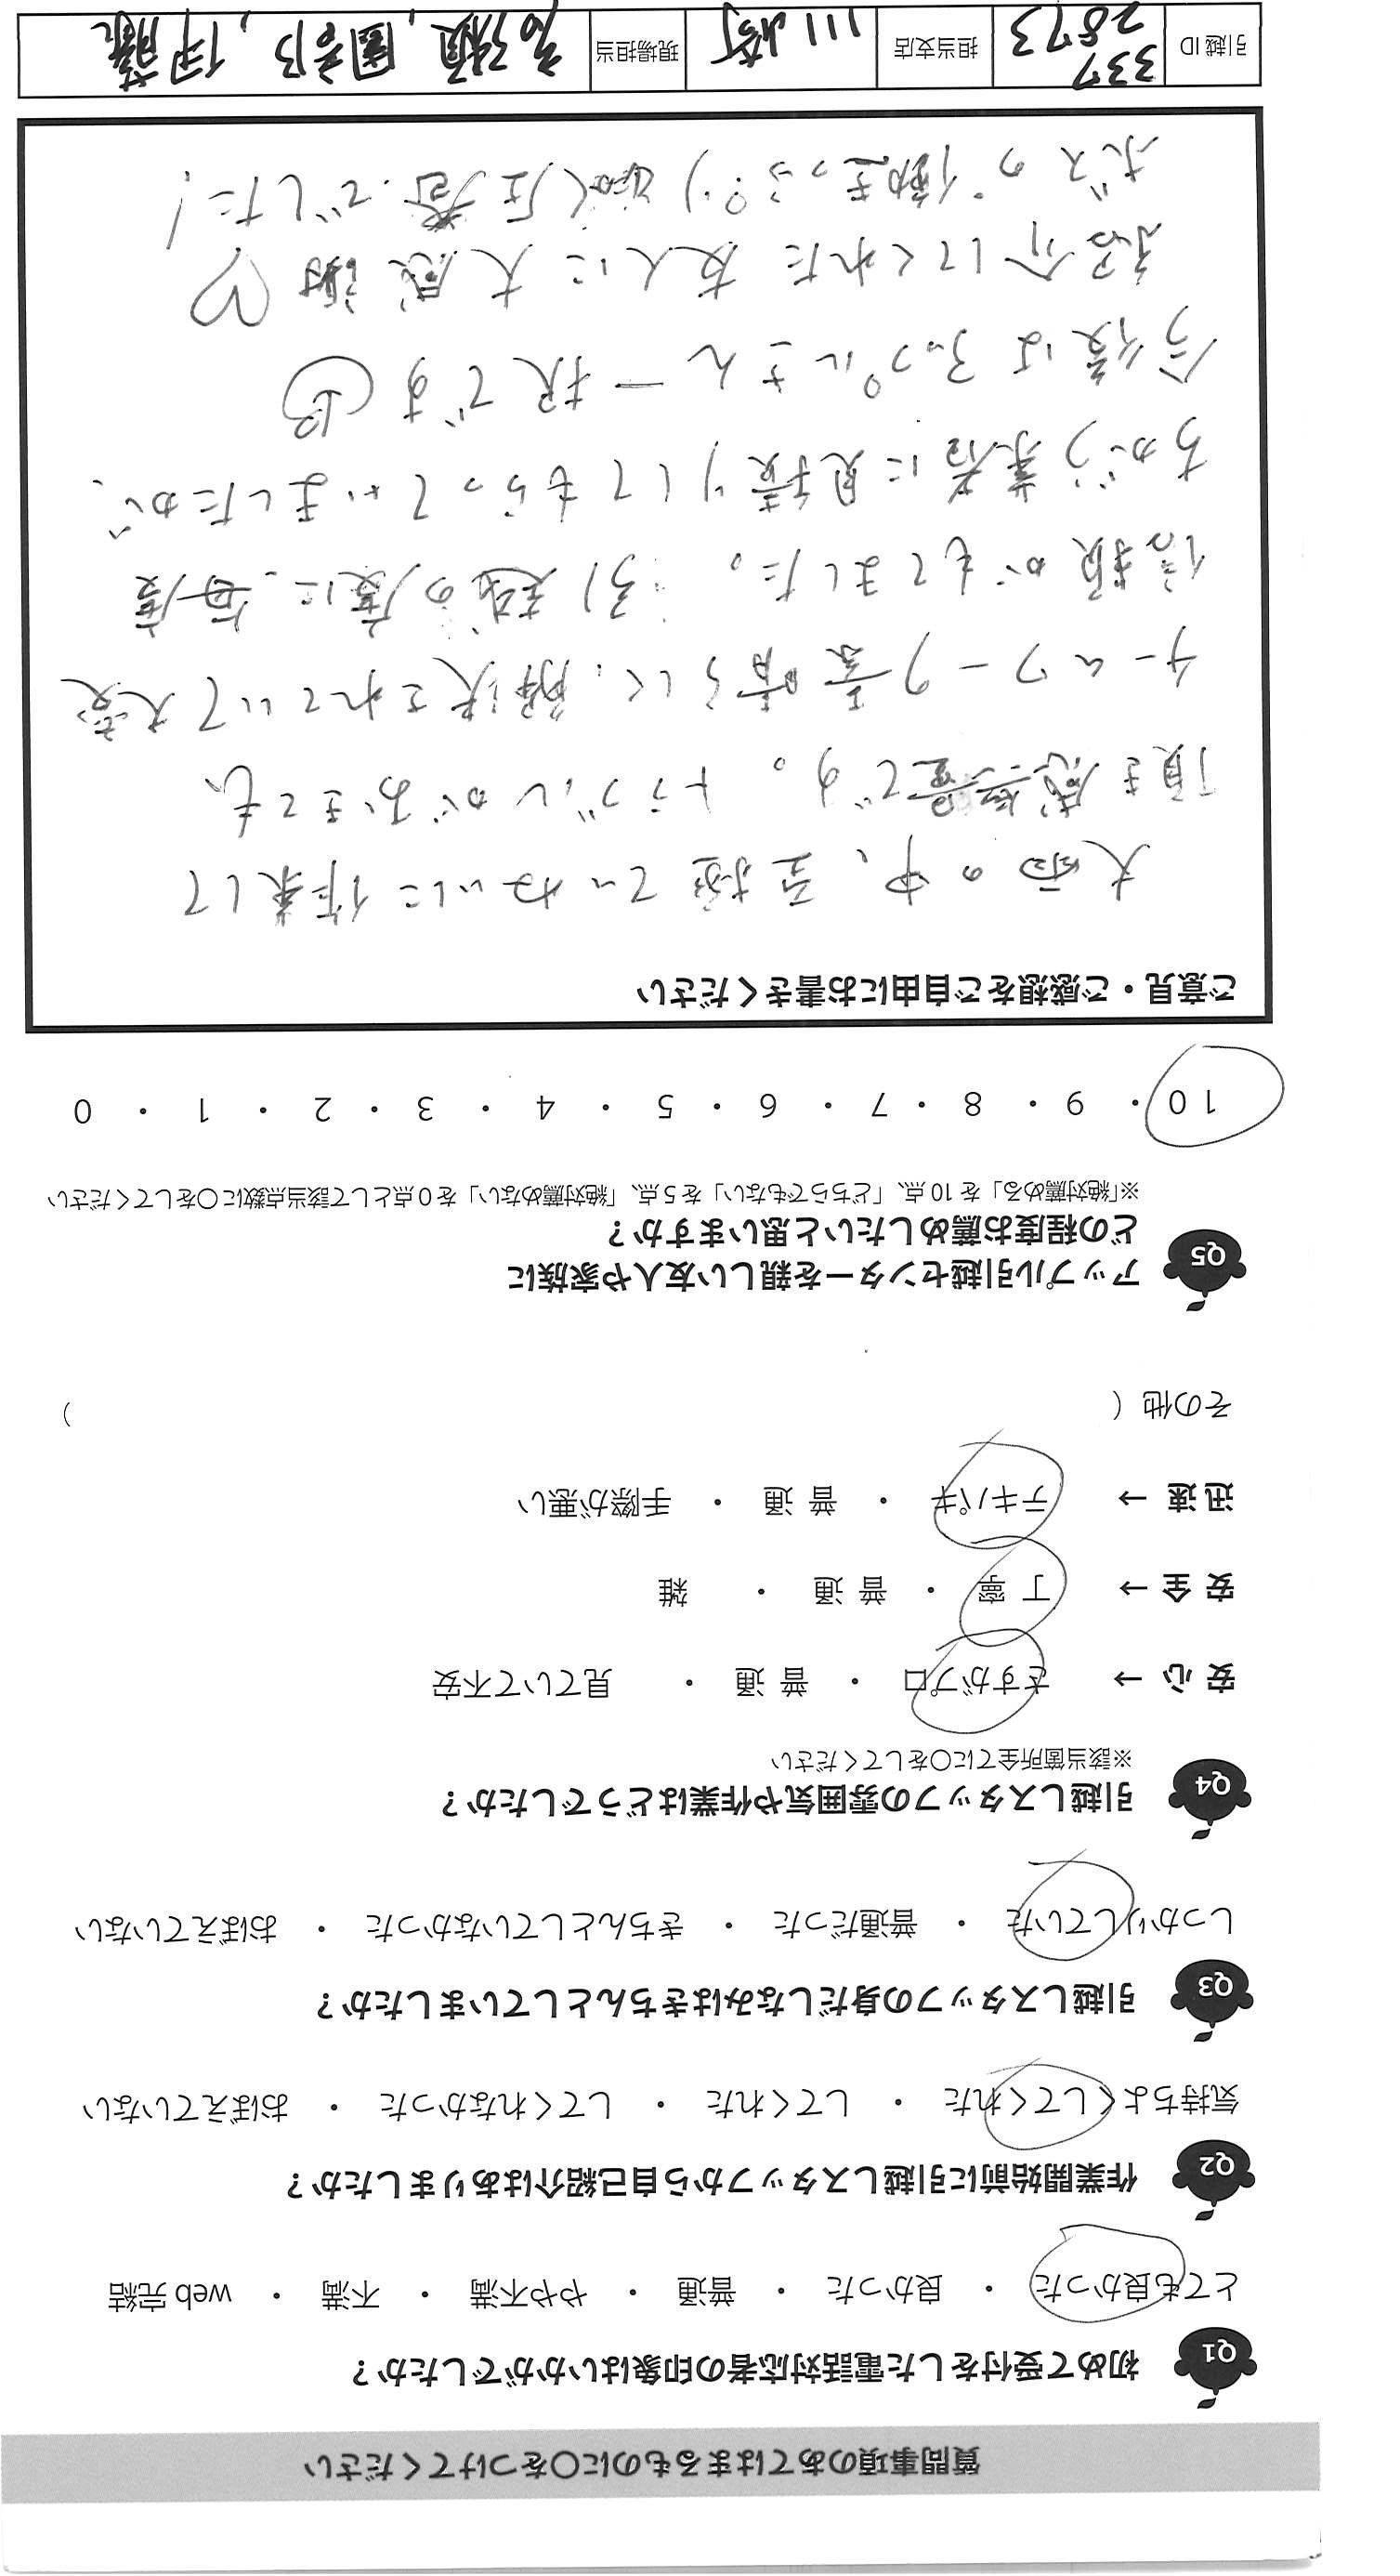 質問事項のあてはまるものに○をつけてください
Q1 初めて受付をした電話対応者の印象はいかがでしたか？
とても良かった ・ 良かった ・ 普通 ・ やや不満 ・ 不満 ・ web 完結
Q2 作業開始前に引越しスタッフから自己紹介はありましたか？
気持ちよくしてくれた ・ してくれた ・ してくれなかった ・ おぼえていない
Q3 引越しスタッフの身だしなみはきちんとしていましたか？
しっかりしていた ・ 普通だった ・ きちんとしていなかった ・ おぼえていない
Q4 引越しスタッフの雰囲気や作業はどうでしたか？
※該当箇所全てに○をしてください
安 心 → さすがプロ ・ 普 通 ・ 見ていて不安
安 全 → 丁 寧 ・ 普 通 ・ 雑
迅 速 → テキパキ ・ 普 通 ・ 手際が悪い
その他（ ）
Q5 アップル引越センターを親しい友人や家族に
どの程度お薦めしたいと思いますか？
※「絶対薦める」を 10 点、「どちらでもない」を 5 点、「絶対薦めない」を 0 点として該当点数に○をしてください
10 ・ 9 ・ 8 ・ 7 ・ 6 ・ 5 ・ 4 ・ 3 ・ 2 ・ 1 ・ 0
ご意見・ご感想をご自由にお書きください
大雨の中、至極ていねいに作業して
頂き感無量です。トラブルがおきても、
チームワーク素晴らしく、解決されていて大変
信頼がもてました。引越の度に、毎度
ちがう業者に見積りしてもらっていましたが、
今後はアップルさん一択です
紹介してくれた友人に大感謝♡
ボスの働きっぷり 圧巻でした！
引越 ID 337 2873 担当支店 川崎 現場担当 高瀬, 園部, 伊藤